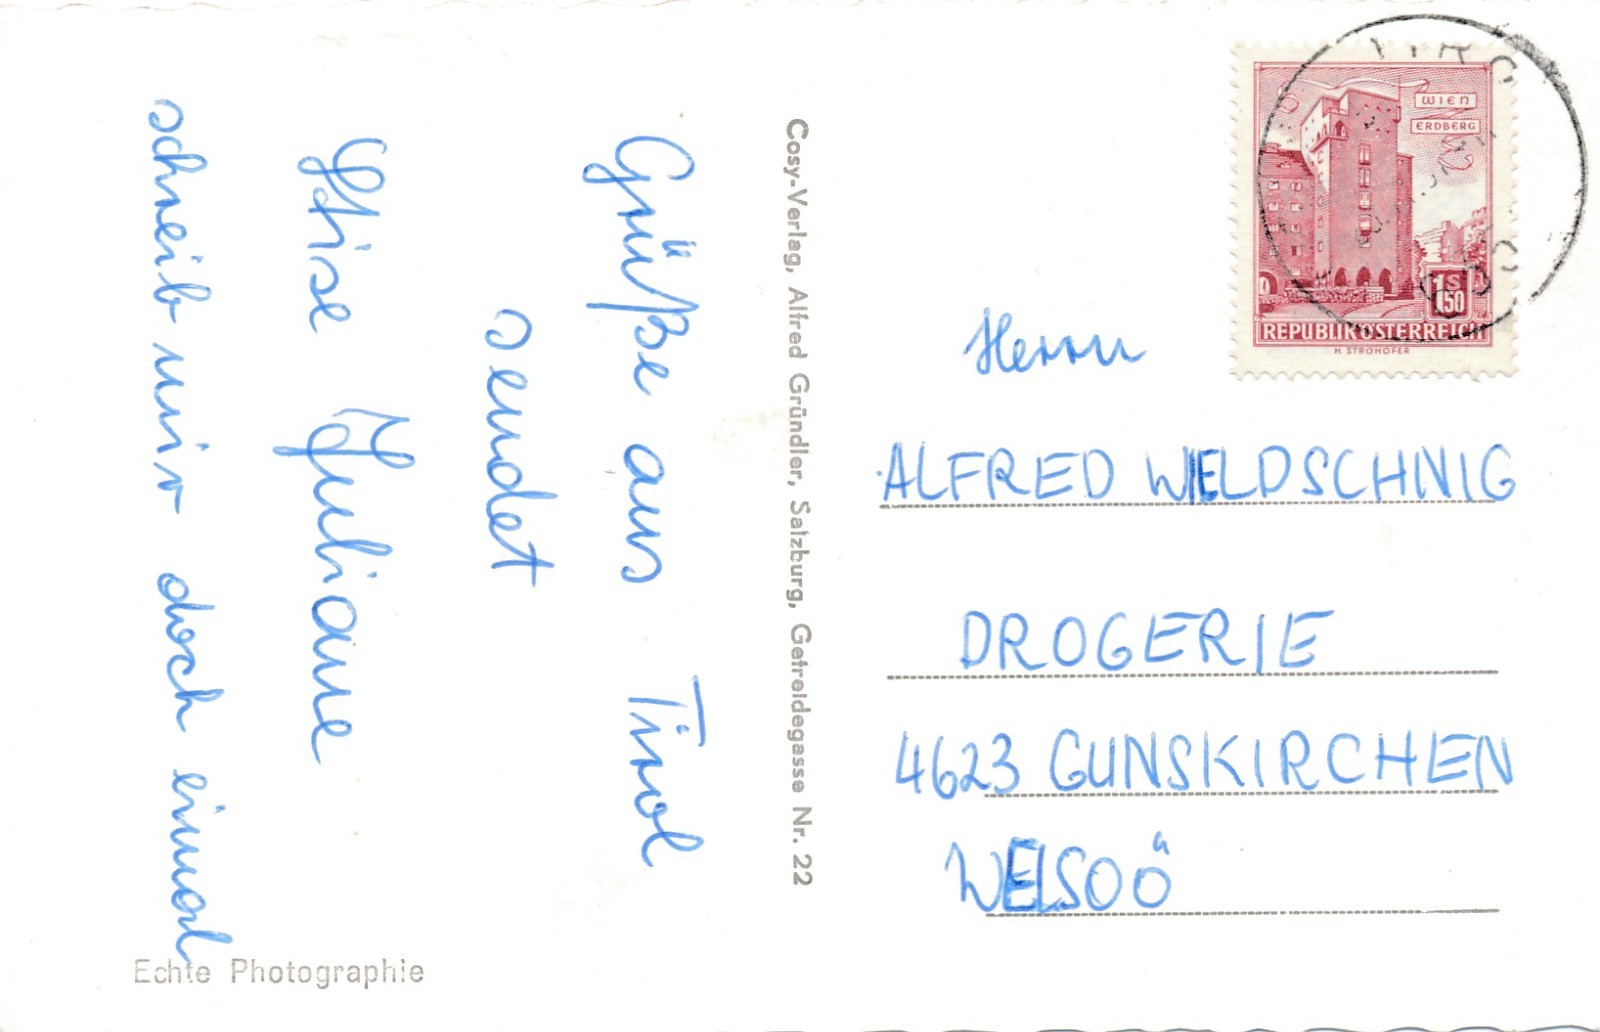 Grüße aus Tirol
sendet
Juliane
schreib mir doch einmal
Echte Photographie
Cosy-Verlag, Alfred Gründler, Salzburg, Getreidegasse Nr. 22
WIEN
ERDBERG
1S
50
REPUBLIK ÖSTERREICH
H. STROHOFER
Herrn
ALFRED WELDSCHNIG
DROGERIE
4623 GUNSKIRCHEN
WELSOÖ